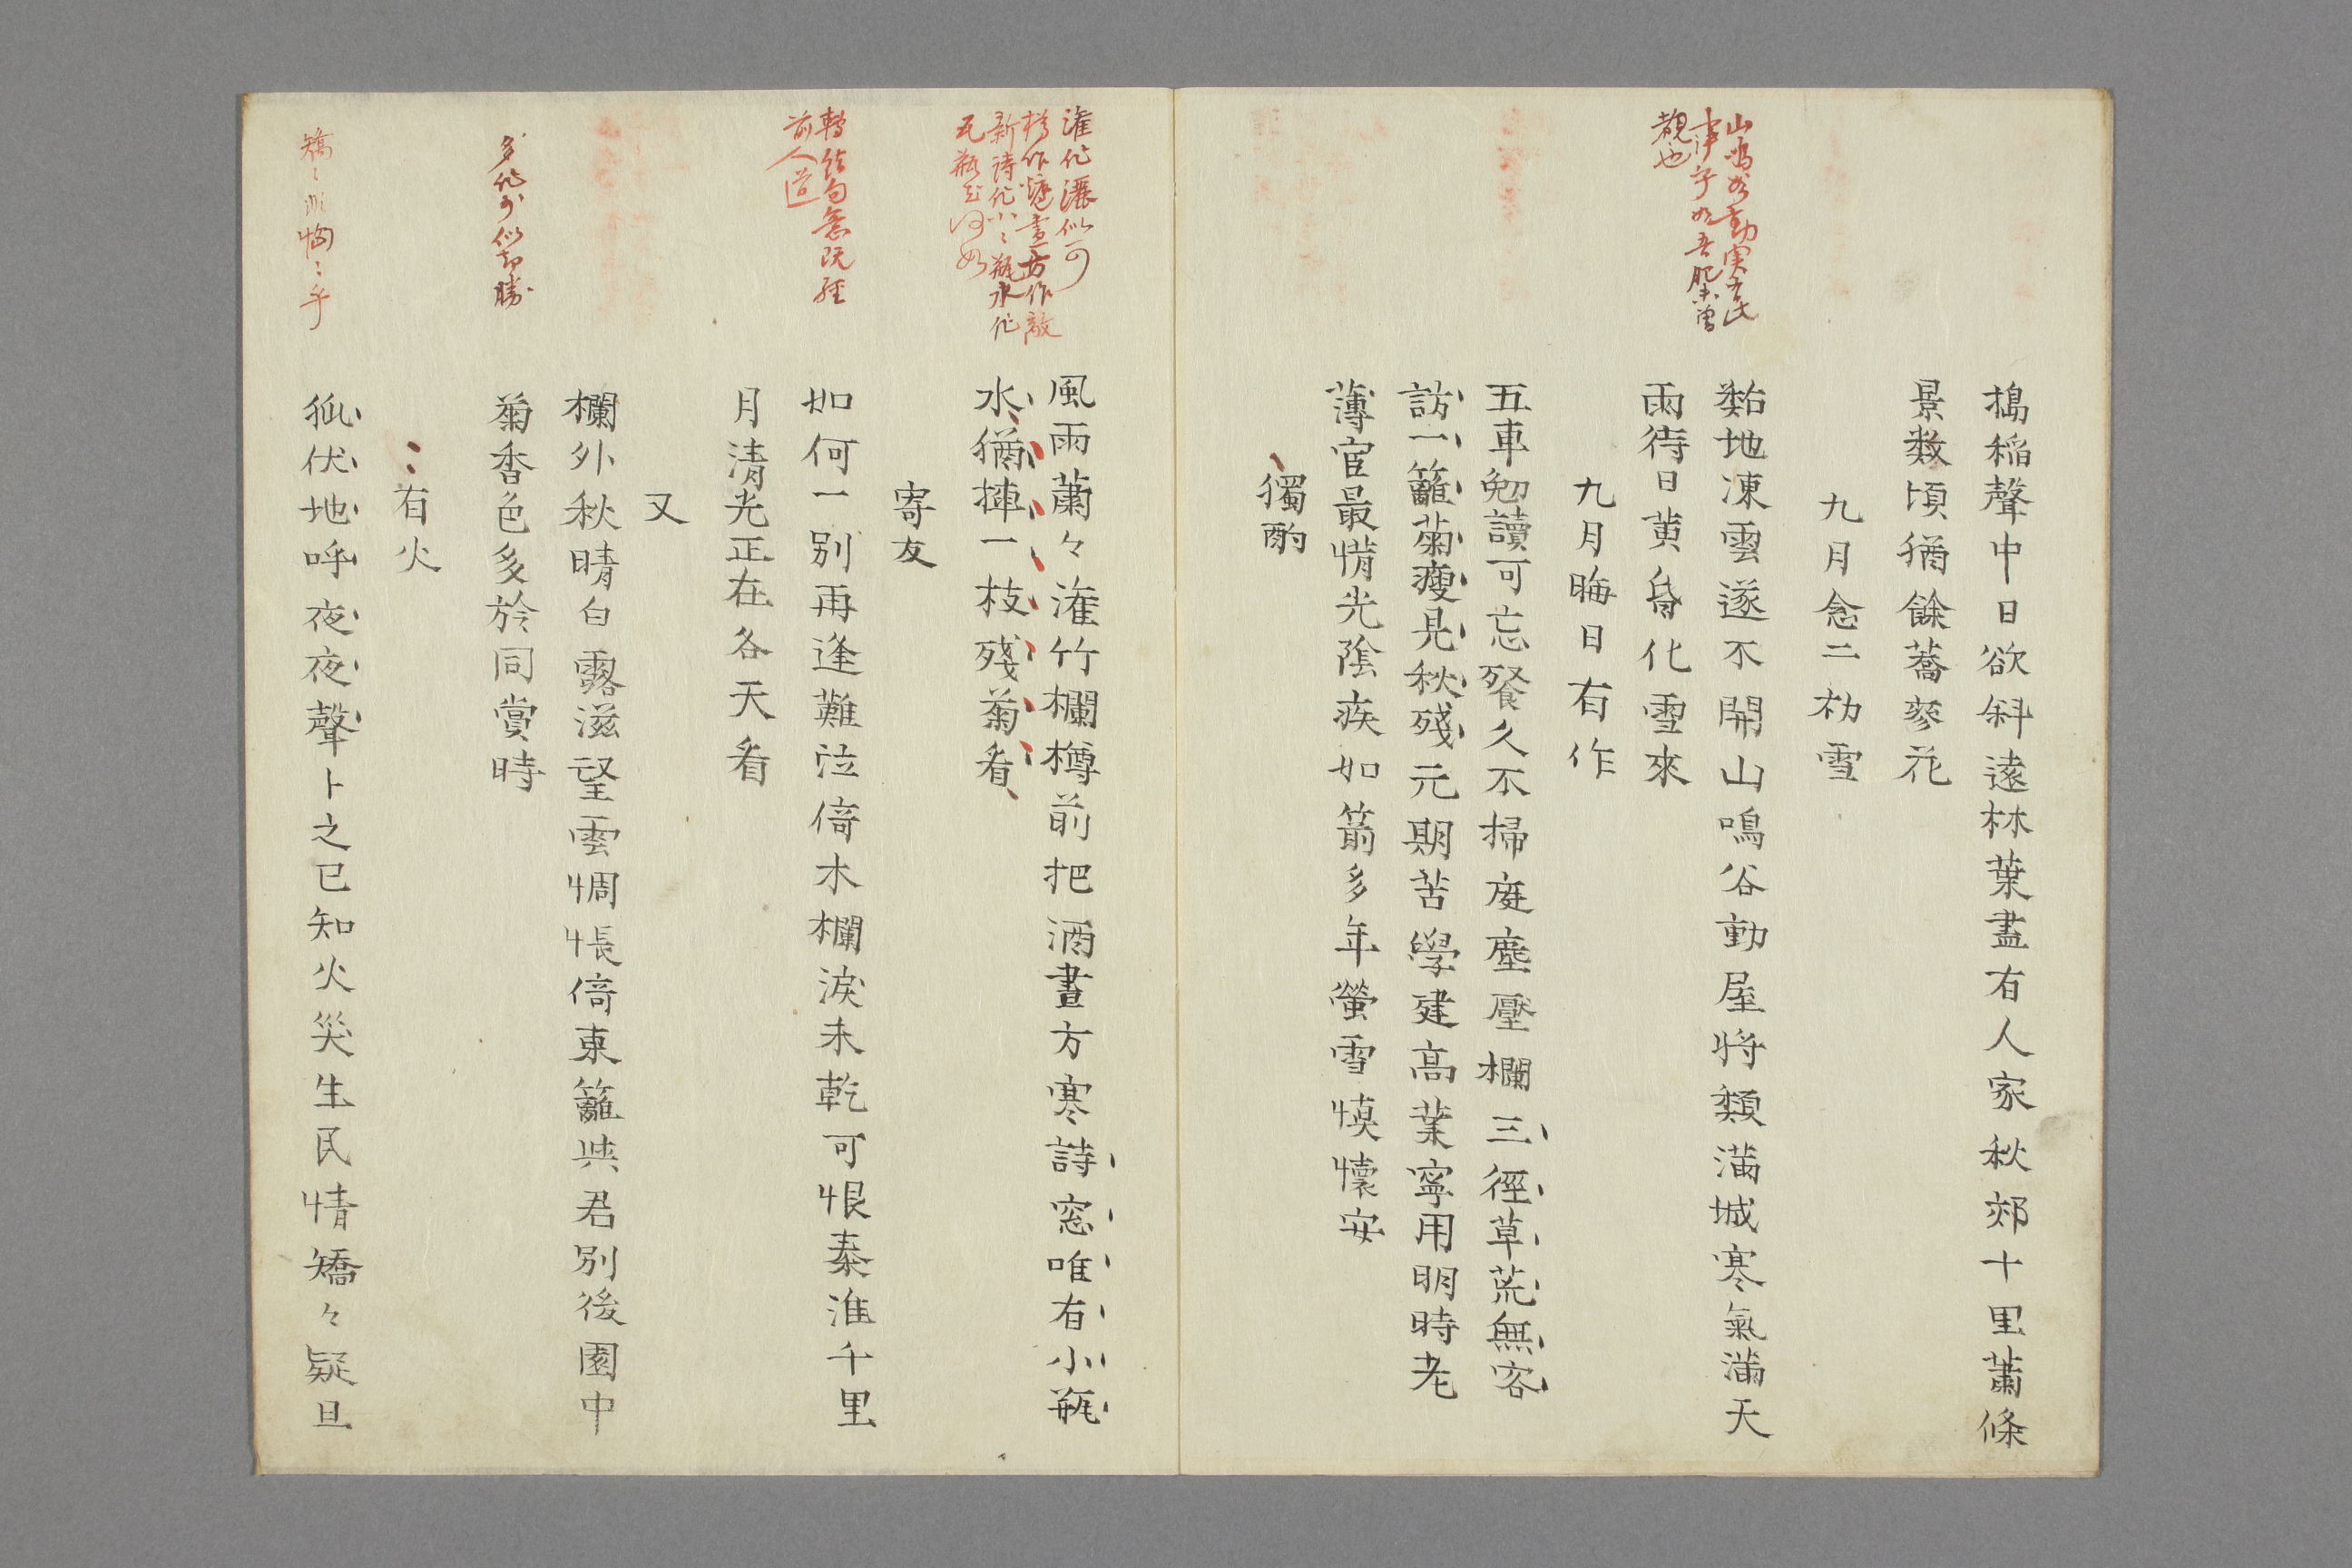 搗稲聲中日欲斜遠林葉盡有人家秋郊十里蕭條
景数頃猶餘蕎麥花
九月念二初雪
黏地凍雲遂不開山鳴谷動屋將頽滿城寒氣滿天
雨待日黄昏化雪來
山鳴谷動
覩也
九月晦日有作
五車勉讀可忘餐久不掃庭塵壓欄三徑草荒無客
訪一籬菊瘦見秋殘元期苦學建高業寧用明時老
薄宦最惜光陰疾如箭多年螢雪慎懷安
獨酌
風雨蕭々潅竹欄樽前把酒晝方寒詩窓唯有小瓶
水猶揷一枝殘菊看
潅作灑似可
樽作爐晝方作敵
新詩作小々瓶水作
瓦瓶
寄友
如何一別再逢難泣倚木欄淚未乾可恨秦淮千里
月清光正在各天看
轉結句意既經
前人道
又
欄外秋晴白露滋望雲惆悵倚東籬與君別後園中
菊香色多於同賞時
多作
似却勝
有火
狐伏地呼夜夜聲卜之已知火災生民情矯々疑旦
矯々
恟々乎